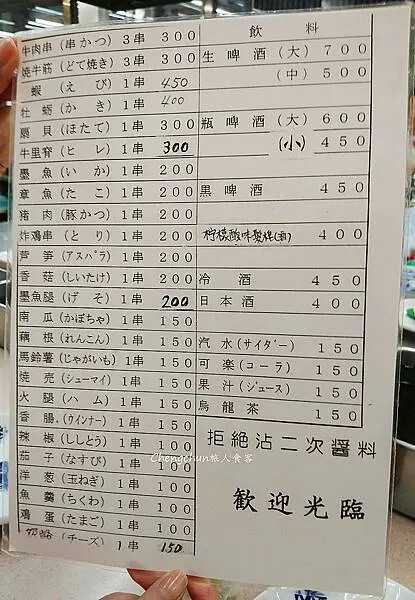 牛肉串(串かつ) 3串 300
焼牛筋(どて焼き) 3串 300
蝦(えび) 1串 450
牡蛎(かき) 1串 400
扇貝(ほたて) 1串 300
牛里脊(ヒレ) 1串 300
墨魚(いか) 1串 200
章魚(たこ) 1串 200
猪肉(豚かつ) 1串 200
炸鶏串(とり) 1串 200
芦笋(アスパラ) 1串 200
香菇(しいたけ) 1串 200
墨魚腿(げそ) 1串 200
南瓜(かぼちゃ) 1串 150
藕根(れんこん) 1串 150
馬鈴薯(じゃがいも) 1串 150
焼売(シューマイ) 1串 150
火腿(ハム) 1串 150
香腸(ウインナー) 1串 100
辣椒(ししとう) 1串 100
茄子(なすび) 1串 100
洋葱(玉ねぎ) 1串 100
魚羹(ちくわ) 1串 100
鶏蛋(たまご) 1串 100
(チーズ) 1串 150
飲料
生啤酒(大) 700
(中) 500
瓶啤酒(大) 600
(小) 450
黒啤酒 450
柠檬酸味 400
冷酒 450
日本酒 400
汽水(サイダー) 150
可楽(コーラ) 150
果汁(ジュース) 150
烏龍茶 150
拒絶沾二次醤料
歓迎光臨
Chengchun旅人食客